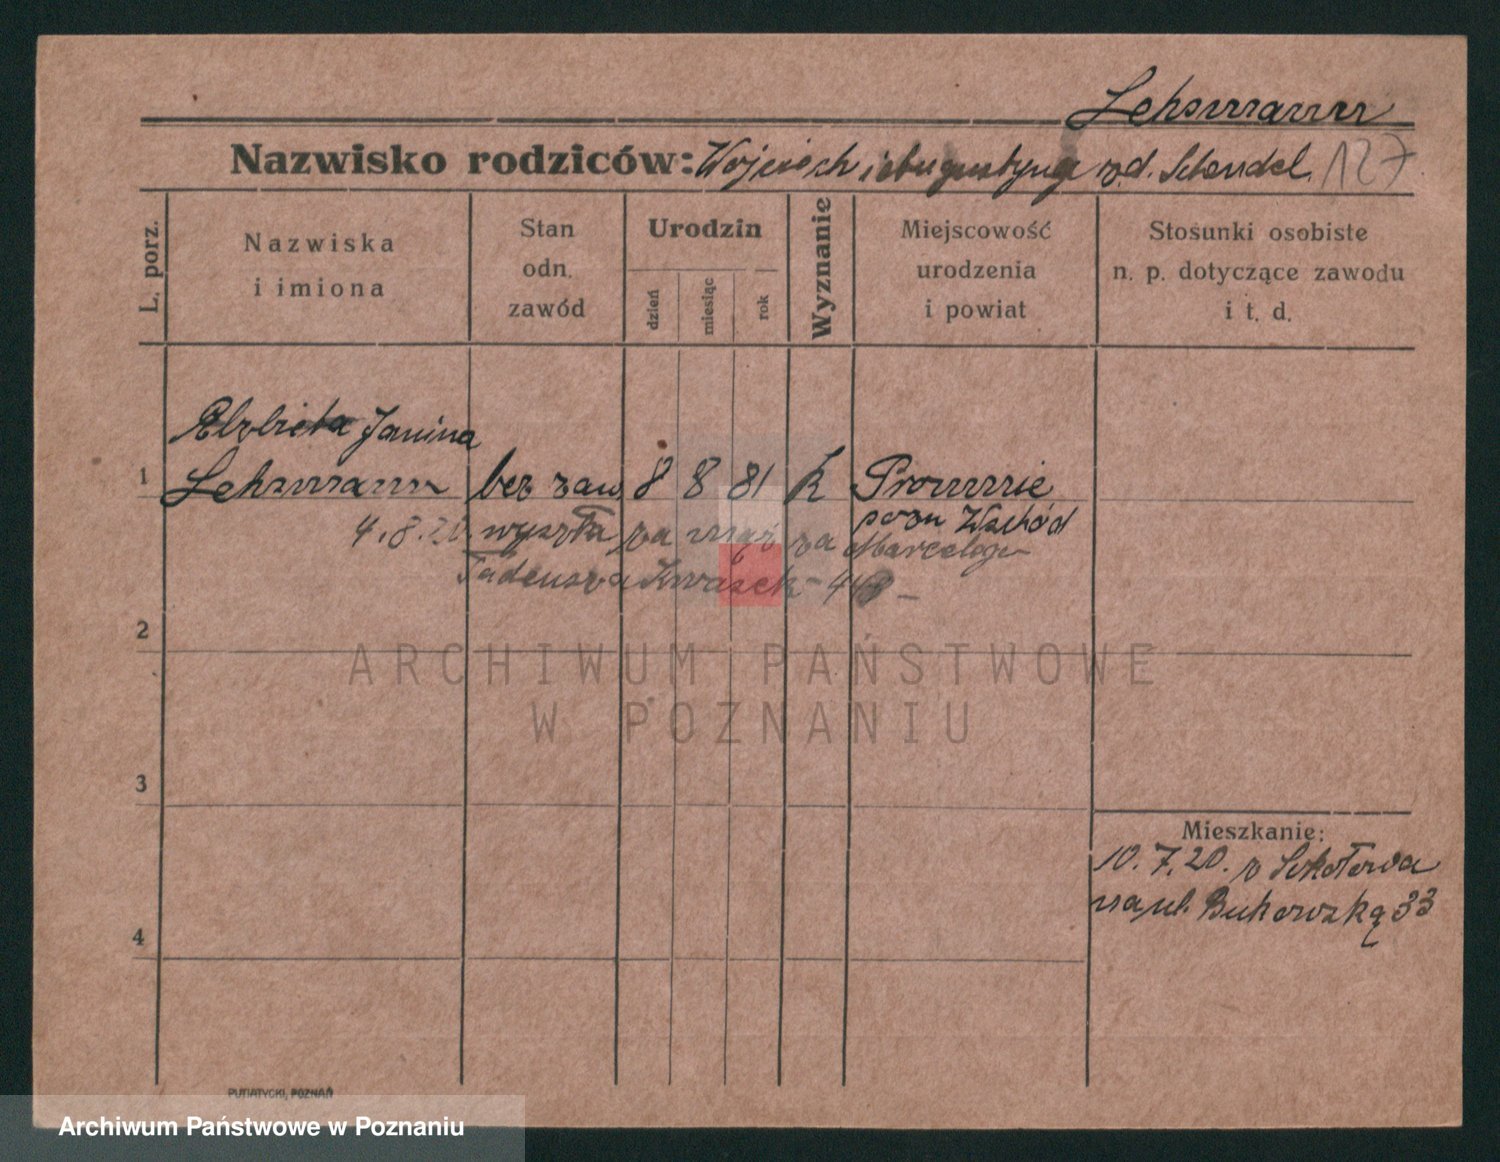 Lehsmann
Nazwisko rodziców: Wojciech i Augustyna z d. Schendel. 127
L. porz.
Nazwiska
i imiona
Stan
odn.
zawód
Urodzin
dzień
miesiąc
rok
Wyznanie
Miejscowość
urodzenia
i powiat
Stosunki osobiste
n. p. dotyczące zawodu
i t. d.
Elzbieta Janina
1 Lehsmann bez zaw 8 8 81 K
pozn Wschód
4.8.20. wyszła za mąż za Marcelego
Tadeusza Kwasek
2
3
4
Mieszkanie:
10.7.20. z
na ul. Bukowską 33
PUTIATYCKI, POZNAŃ
ARCHIWUM PAŃSTWOWE
W POZNANIU
Archiwum Państwowe w Poznaniu